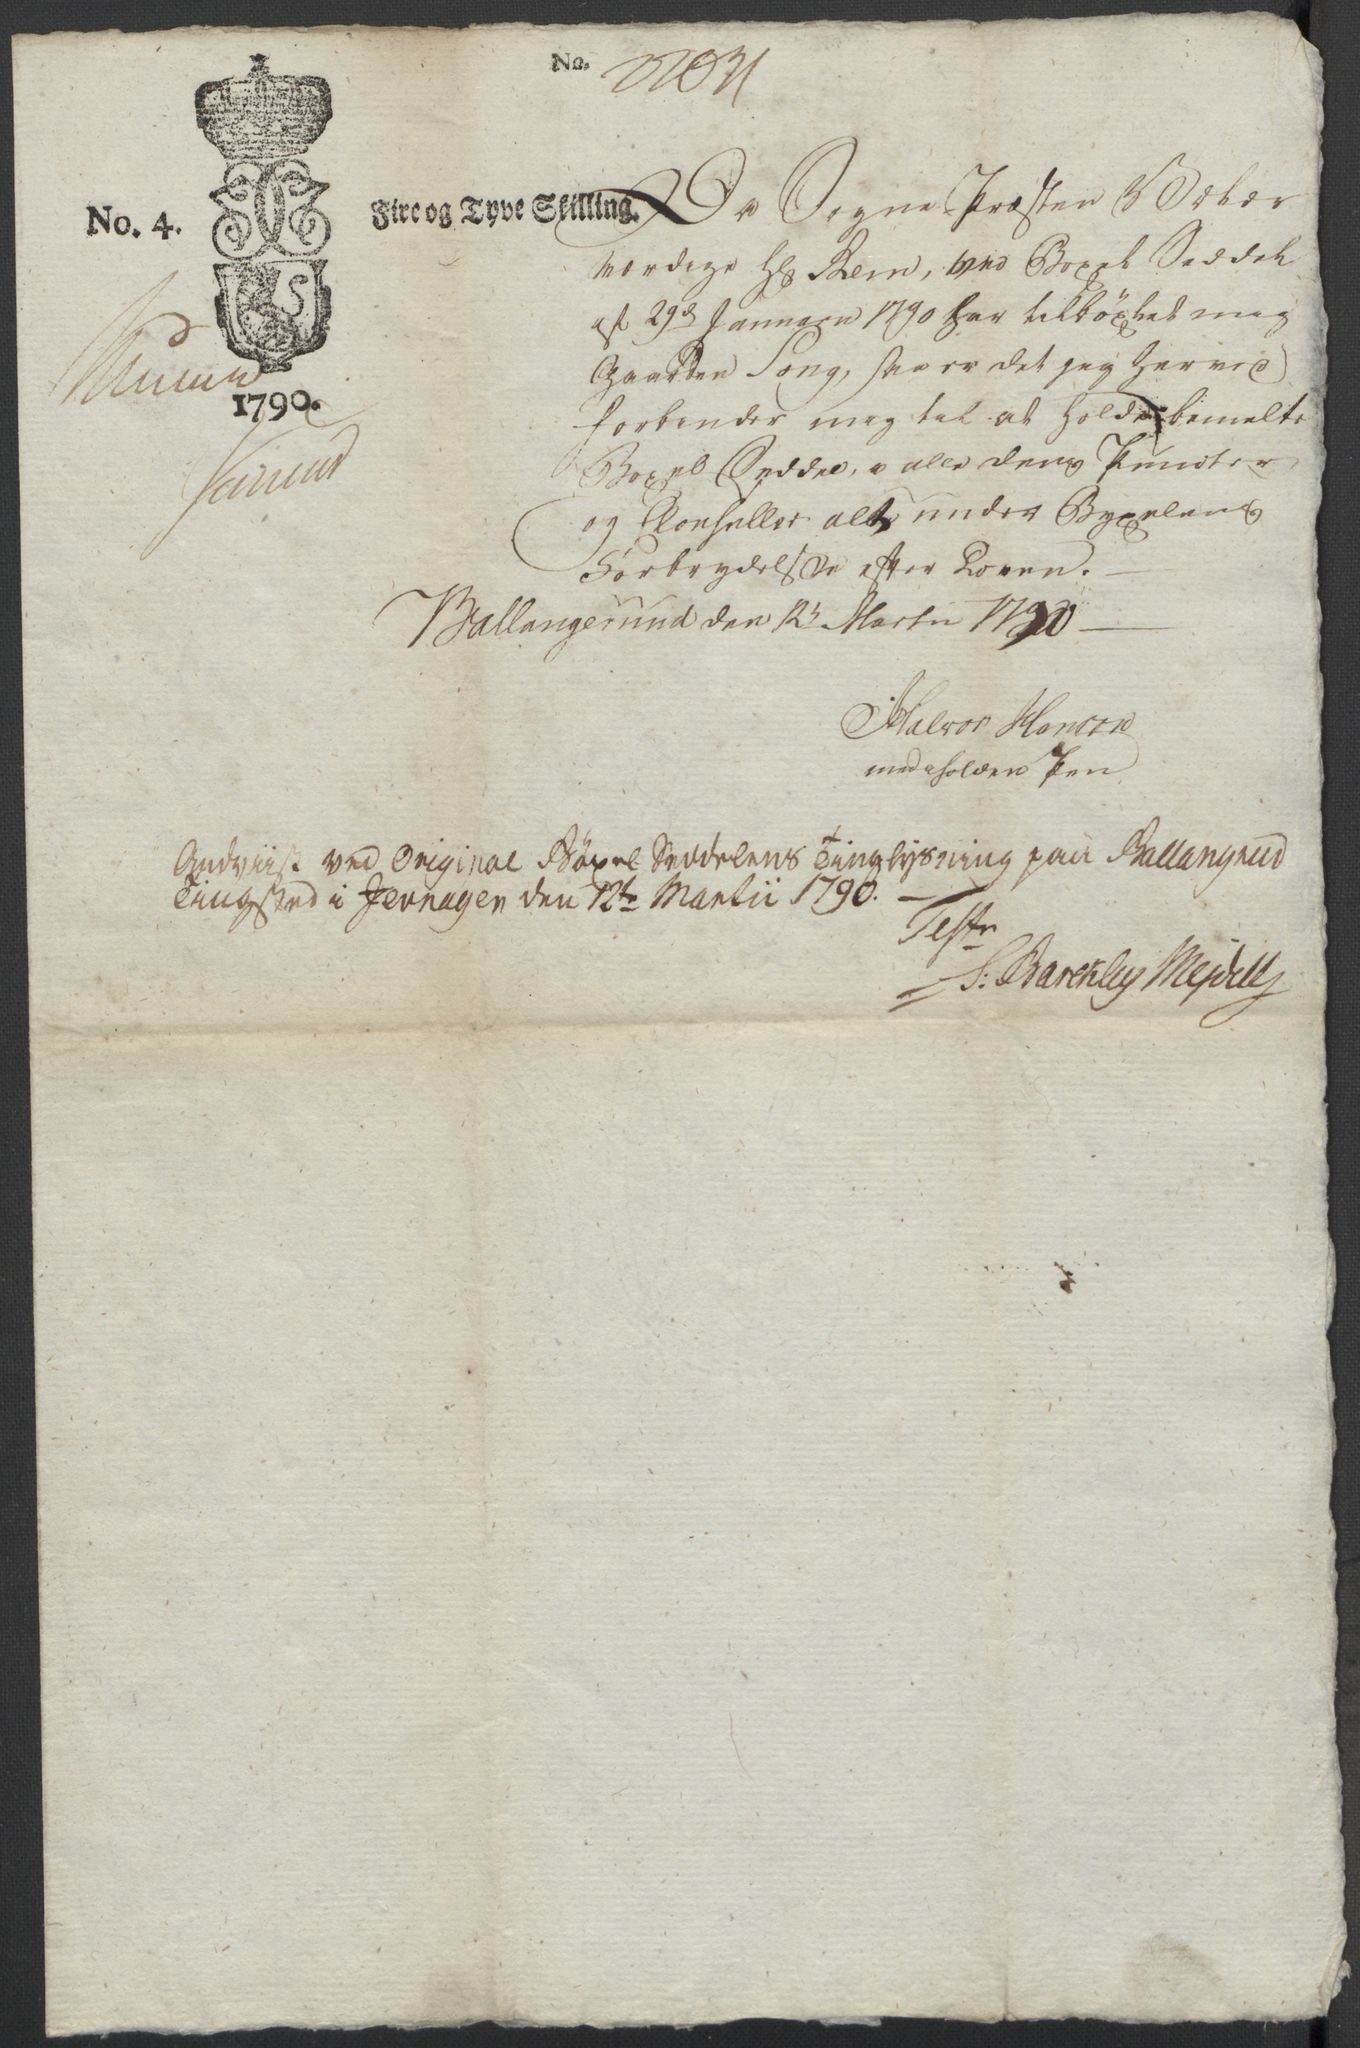 No.
No. 4.
Fire og Tyve Skilling.
1790.
Da Sogne Præsten Velær
værdige Hr Rein, ved Boxel Seddel
af 29d Januarii 1790 har tilböxlet mig
Gaarden Song, saa er det jeg herved
forbinder mig til at holde bemelte
Boxel Seddel, i alle dens Puncter
og Clausuller alt under Byxelens
Forbrydelse efter Loven.
Ballangerund den 12t Martii 1790
Halvor Hansen
med aholden Pen
Andviist ved Original Böxel Seddelens Tinglysning paa Ballangrud
Tingsted i Jevnager den 12te Martii 1790.
Test
S: Barckley Mejdell